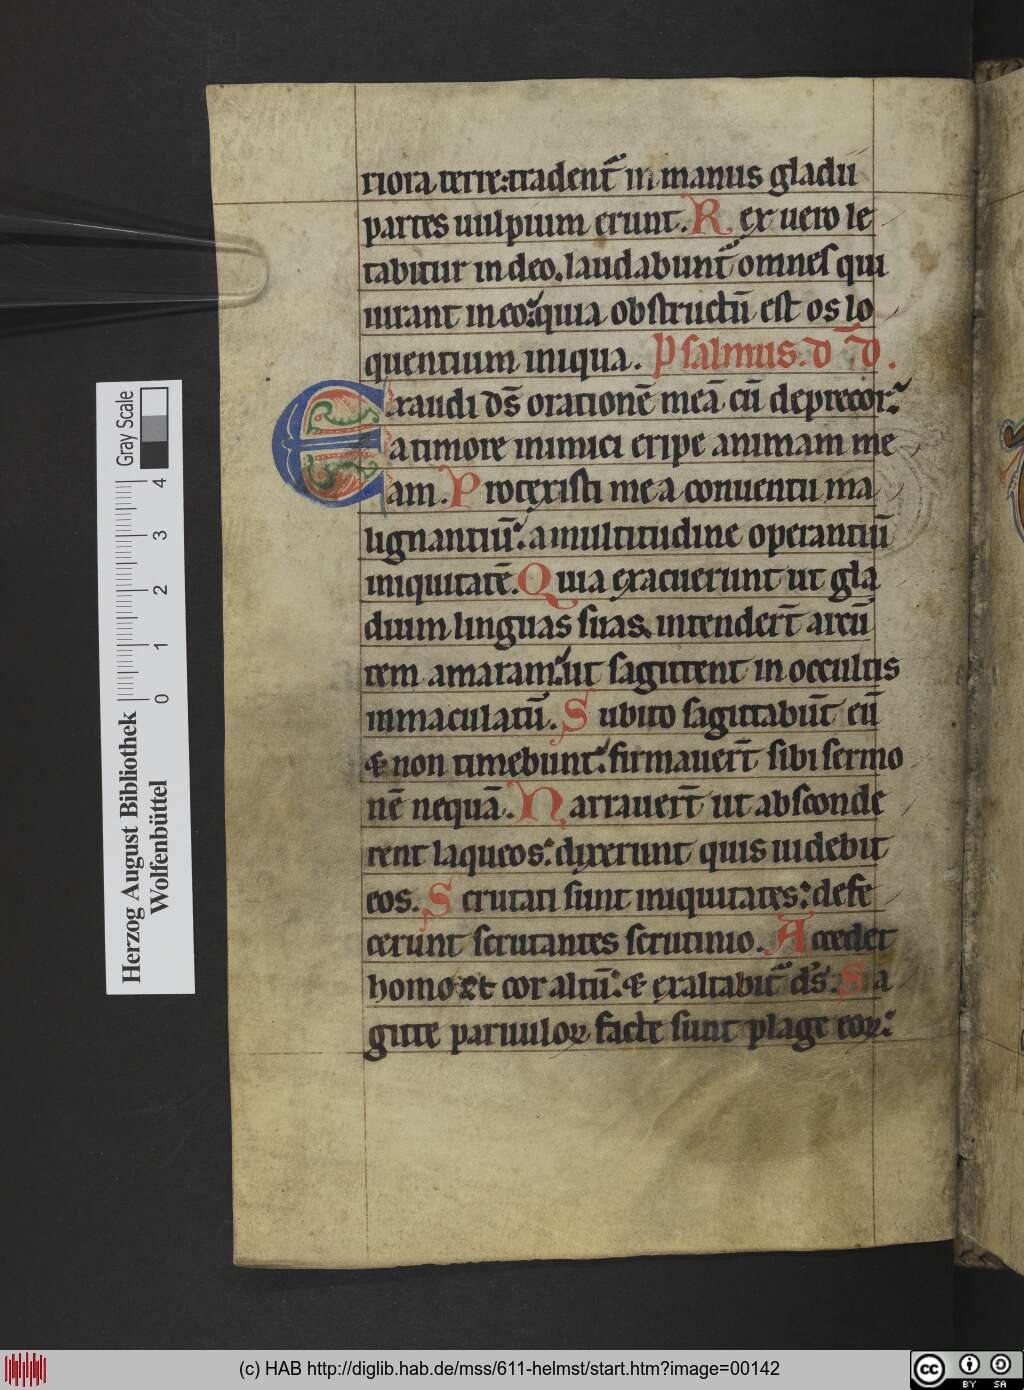 riora terre: tradent᷑ in manus gladii
partes uulpium erunt. Rex vero le
tabitur in deo. laudabunt᷑ omnes qui
iurant in eo: quia obstructū est os lo
quentium iniqua. Psalmus. d̄d.
Exaudi d̄s orationē meā cū deprecor:
a timore inimici eripe animam me
am. Protexisti me a conuentu ma
lignantiū: a multitudine operantiū
iniquitatē. Quia exacuerunt ut gla
dium linguas suas, intender̄t arcū
rem amaram: ut sagittent in occultis
inmaculatū. Subito sagittabūt eū
& non timebunt: firmauer̄t sibi sermo
nē nequā. Narrauer̄t ut absconde
rent laqueos: dixerunt quis uidebit
eos. Scrutati sunt iniquitates: defe
cerunt scrutantes scrutinio. Accedet
homo et cor altū: & exaltabit᷑ d̄s. Sa
gitte paruuloꝝ facte sunt plage eoꝝ:
Herzog August Bibliothek
Wolfenbüttel
Gray Scale
0 1 2 3 4
(c) HAB http://diglib.hab.de/mss/611-helmst/start.htm?image=00142
cc BY SA